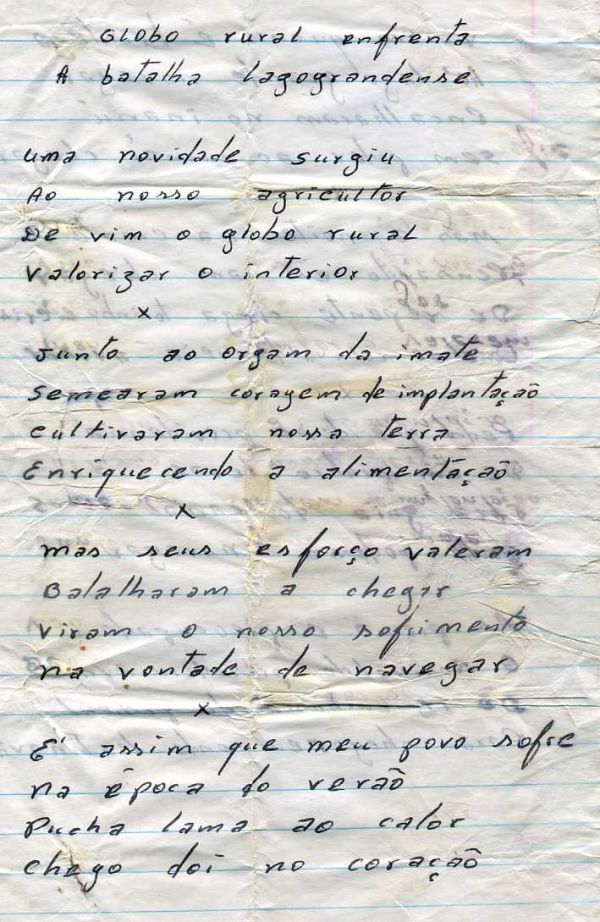 Globo rural enfrenta
A batalha lagograndense
uma novidade surgiu
Ao nosso agricultor
De vim o globo rural
Valorizar o interior
x
Junto ao orgam da imate
Semearam coragem de implantação
cultivaram nossa terra
Enriquecendo a alimentação
x
mas seus esforço valeram
Batalharam a chegar
Viram o nosso sofrimento
na vontade de navegar
x
E' assim que meu povo sofre
na época do verão
Pucha lama ao calor
chego doi no coração